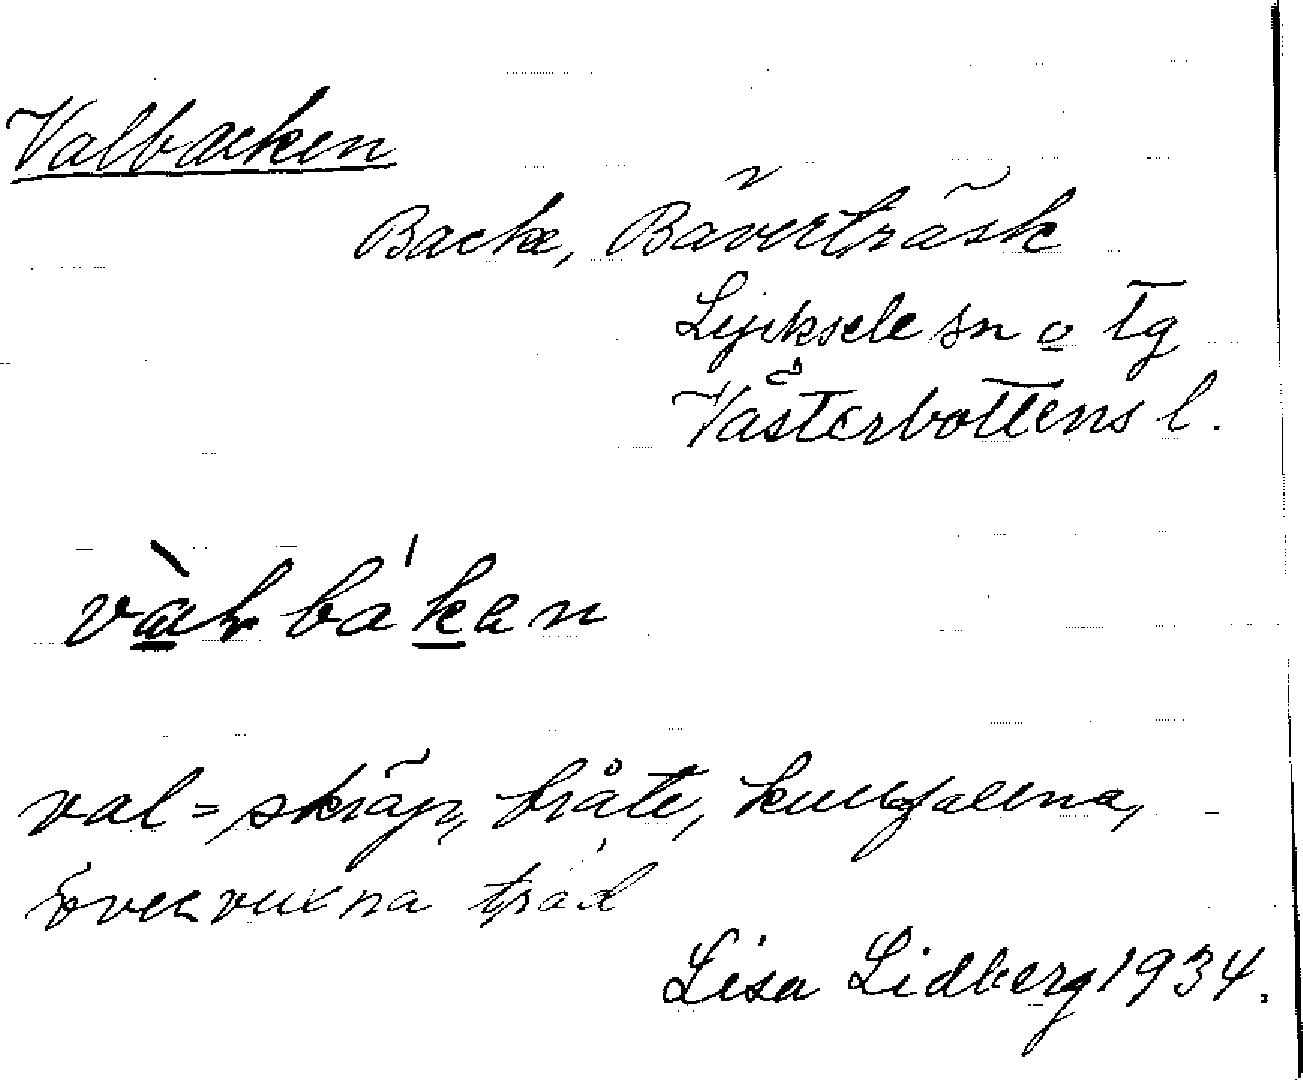 Valbacken
Backe, Bäverträsk
Lycksele sn o Tg
Västerbottens l.
val = skräp, bråte, kullfallna,
övervuxna träd
Lisa Lidberg 1934.